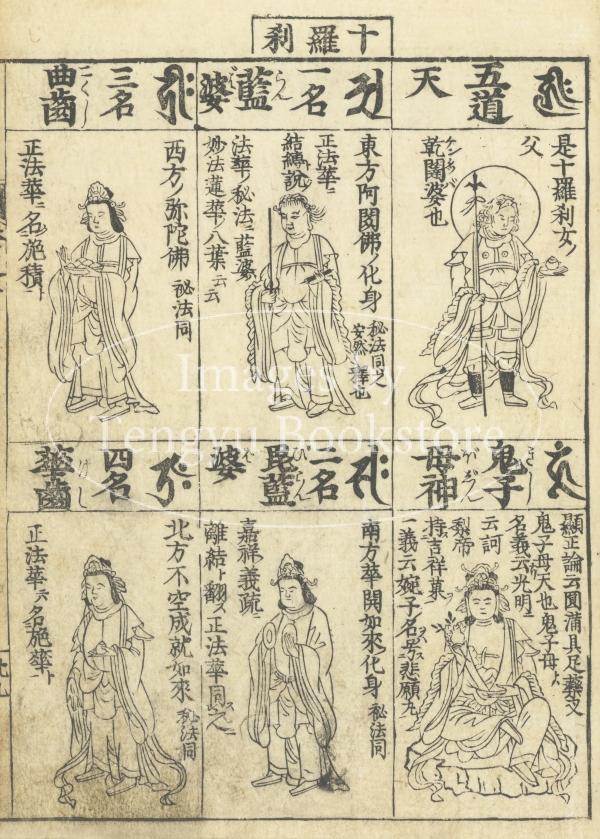 十羅刹
五道
天
是十羅刹女ノ
父
乾闥婆也
一名
藍婆
らんば
東方阿閦佛ノ化身
秘法同之
安然釋也
正法華ニ
結縛説
法華ノ秘法ニ藍婆
妙法蓮華ノ八葉云云
三名
曲齒
こくし
西方ノ弥陀佛
秘法同
正法華ニ名施積ト
鬼子
母神
きし
ぼじん
顯正論云圓滿具足藥叉
鬼子母天也鬼子母ハ
名義云光明
云訶
梨帝
持吉祥菓
二名
毘藍
婆
びらんば
南方華開如來ノ化身
秘法同
嘉祥義疏ニ
離結ト翻ス正法華同之
四名
華齒
けし
北方不空成就如來
秘法同
正法華ニ名施華ト
Images by
Tengyu Bookstore